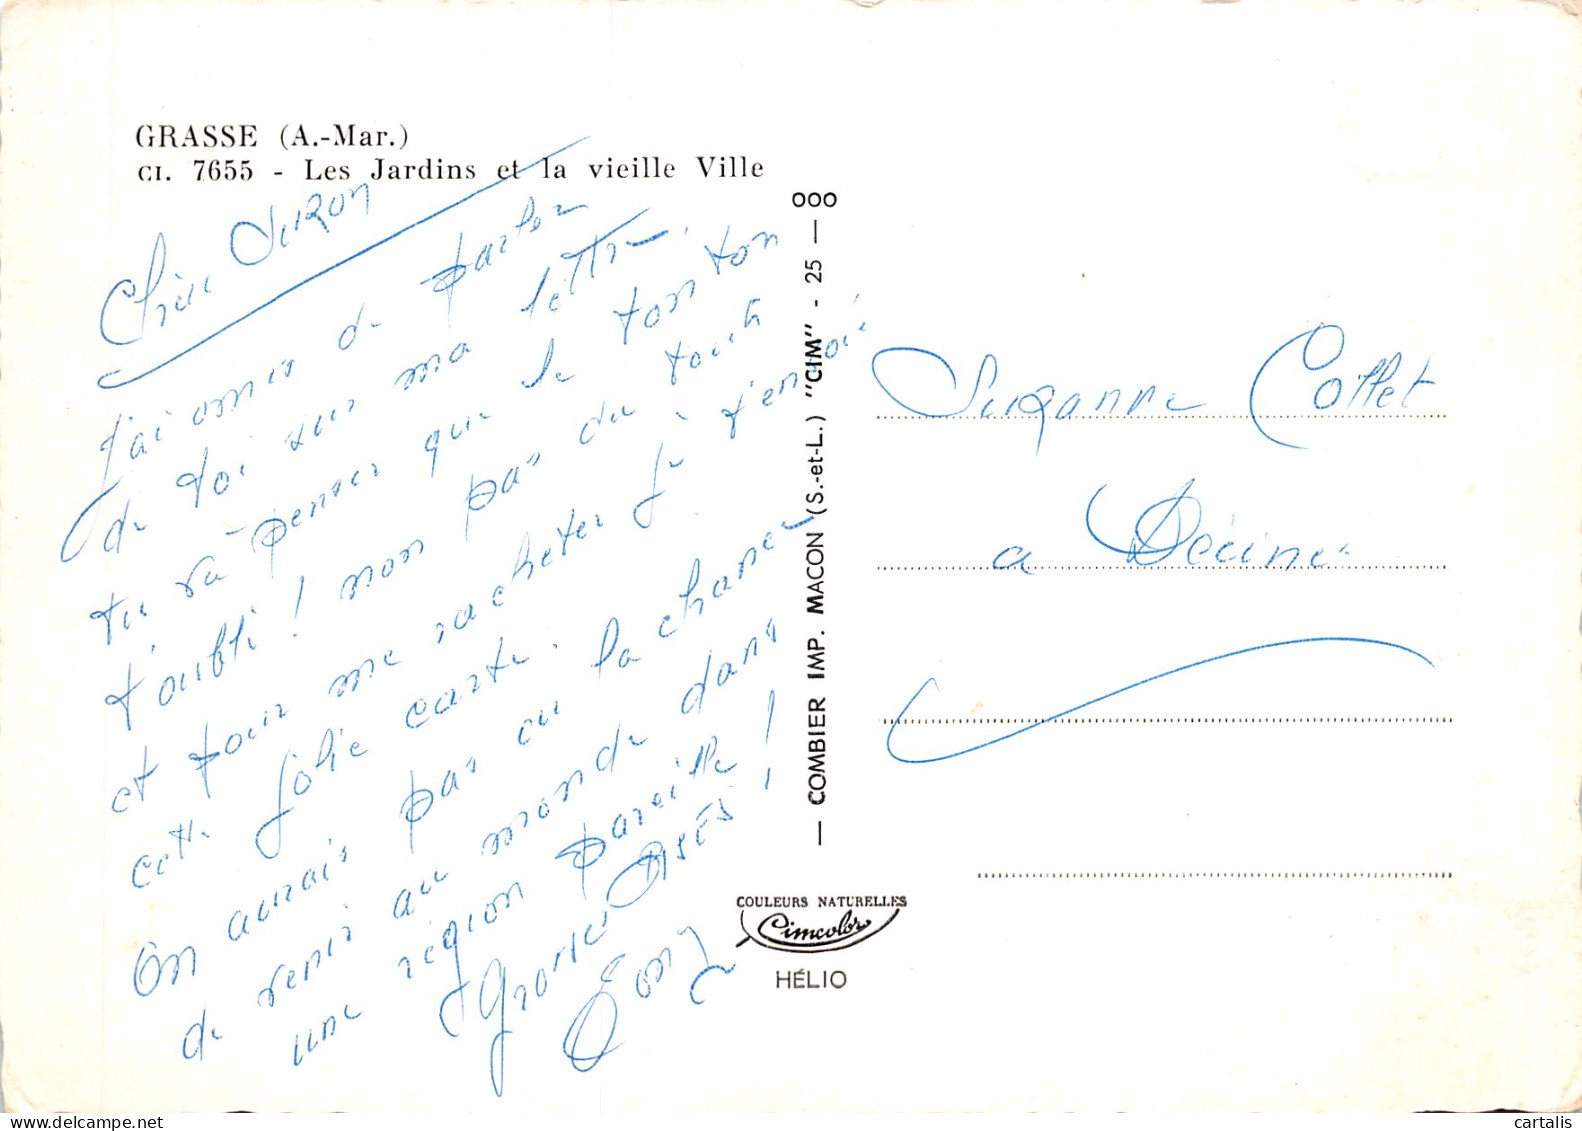 GRASSE (A.-Mar.)
CI. 7655 - Les Jardins et la vieille Ville
Chère Suzon
J'ai omis de parler
de toi sur ma lettre,
tu va penser que le tonton
t'oubli! non pas du tout
et pour me racheter je t'envoie
cette jolie carte.
On aurais pas eu la chance
de venir au monde dans
une région pareille!
Grosses Bises!
Tony
OOO
— COMBIER IMP. MACON (S.-et-L.) "CIM" - 25 —
COULEURS NATURELLES
Cimcolor
HÉLIO
Suzanne Collet
a Décines
cartalis